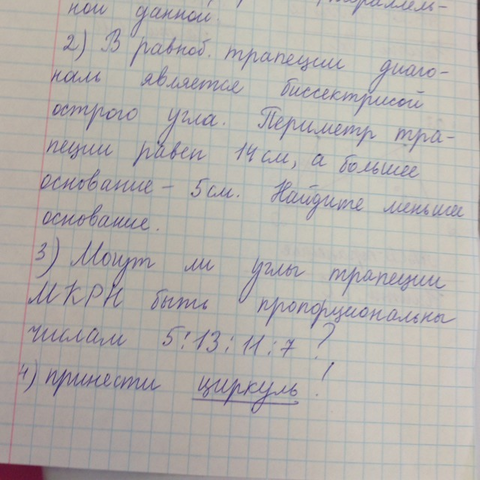 ной данной
2) В равноб. трапеции диаго-
наль является биссектрисой
острого угла. Периметр тра-
пеции равен 14 см, а большее
основание - 5 см. Найдите меньшее
основание.
3) Могут ли углы трапеции
МКРН быть пропорциональны
числам 5:13:11:7 ?
4) принести циркуль!